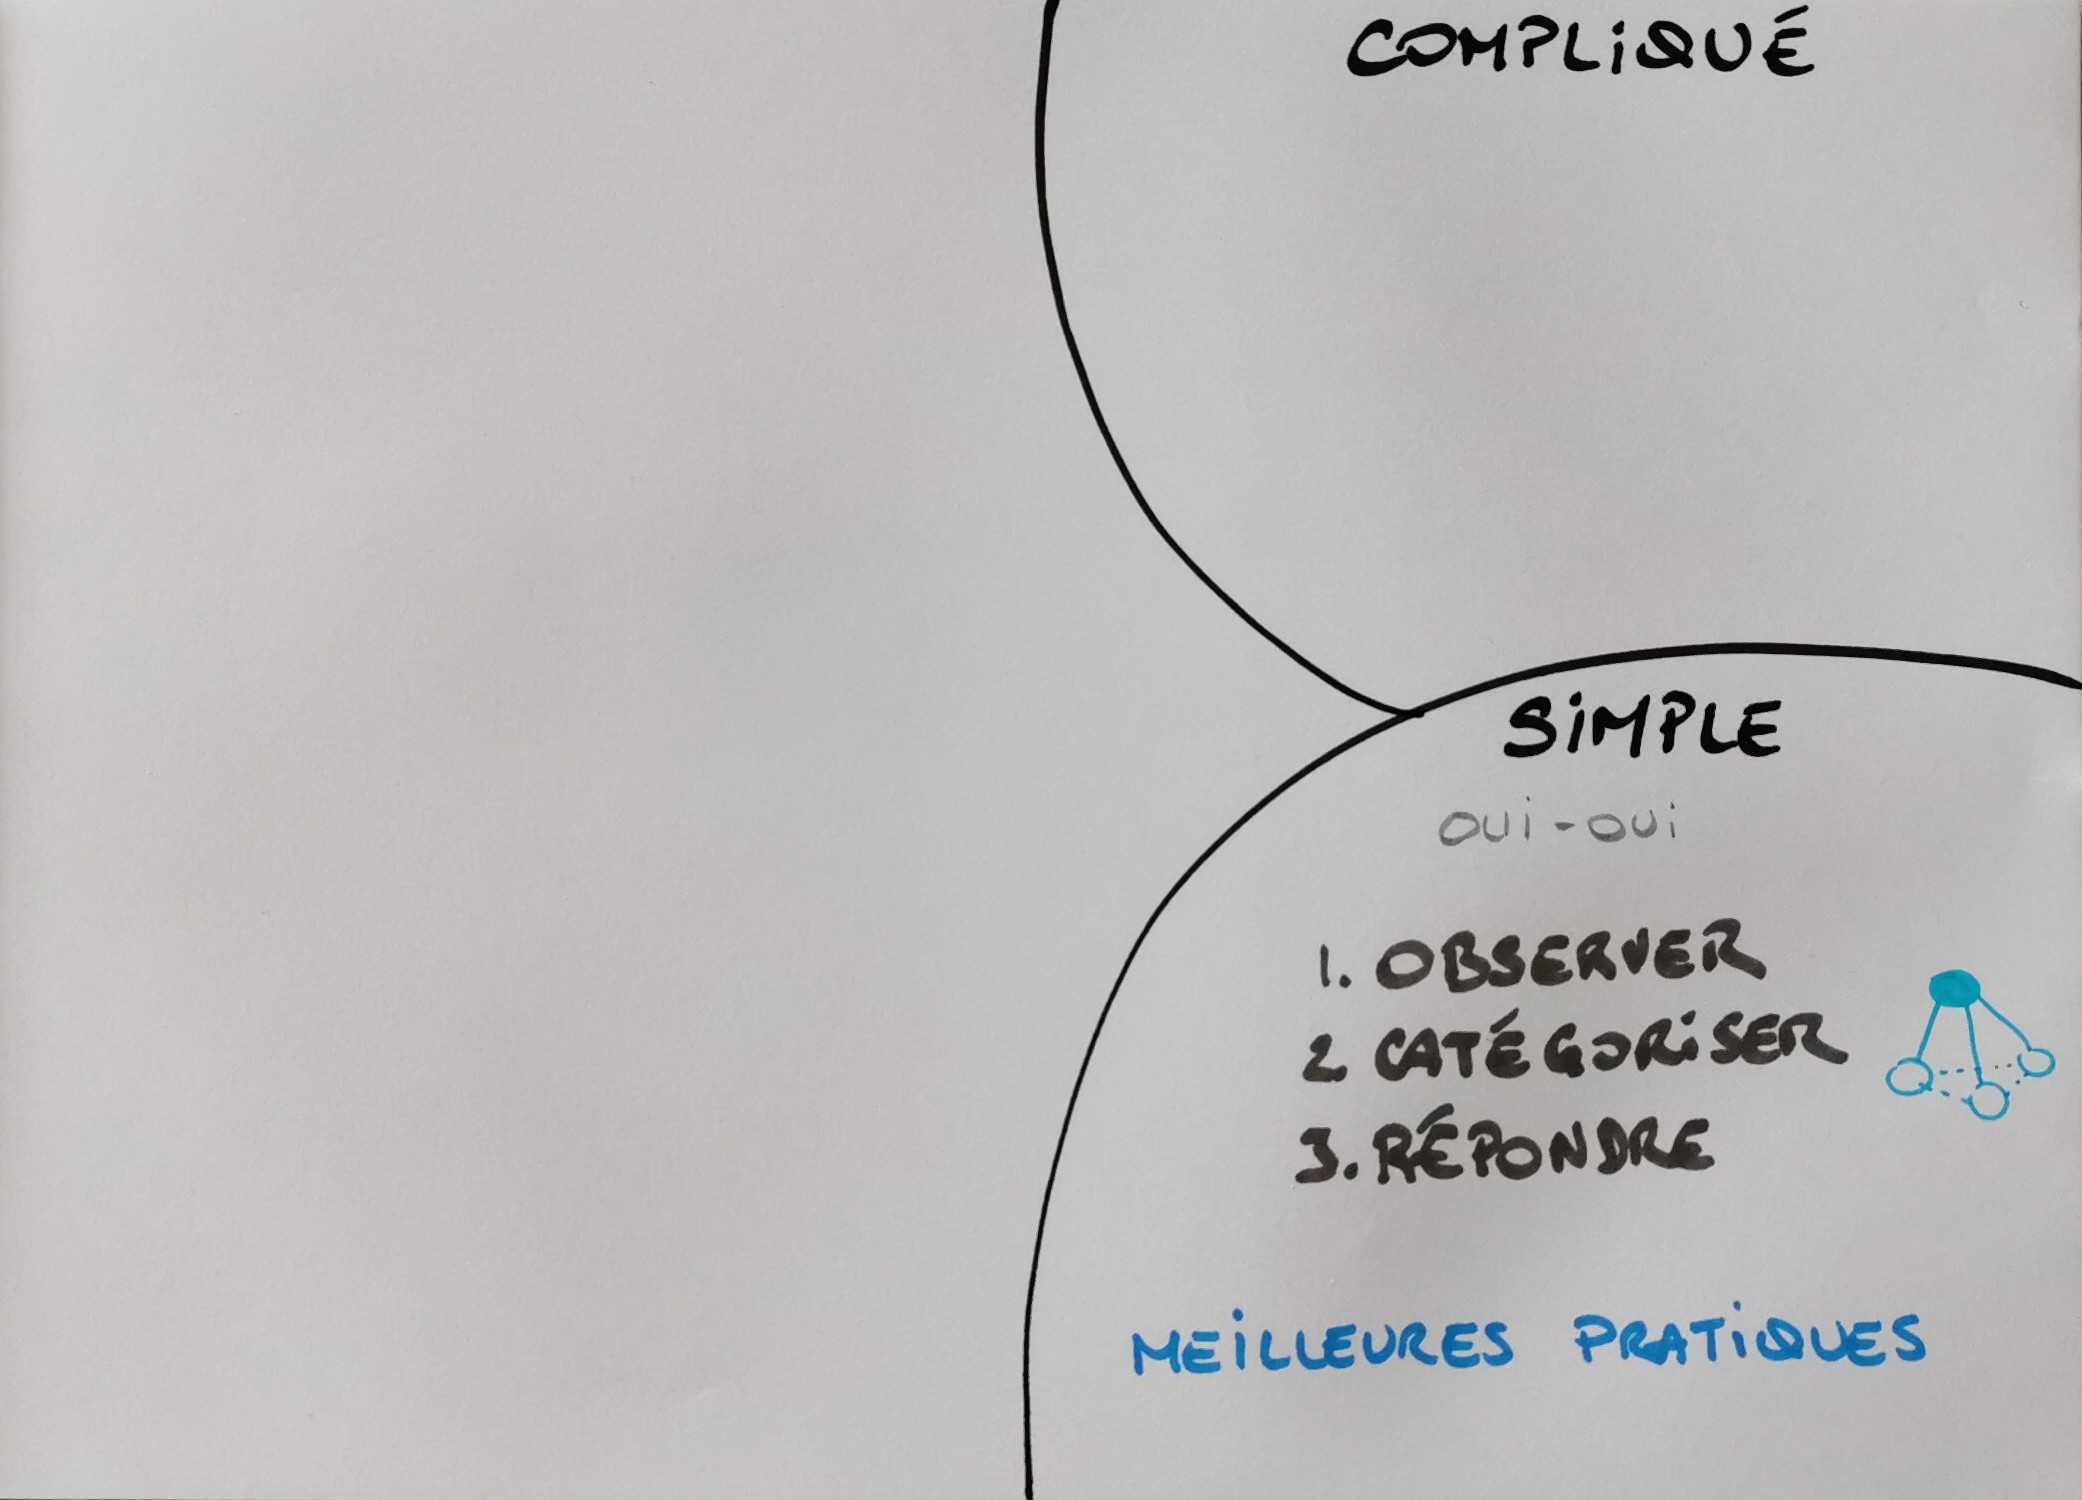 COMPLIQUÉ
SIMPLE
OUI-OUI
1. OBSERVER
2. CATÉGORISER
3. RÉPONDRE
MEILLEURES PRATIQUES